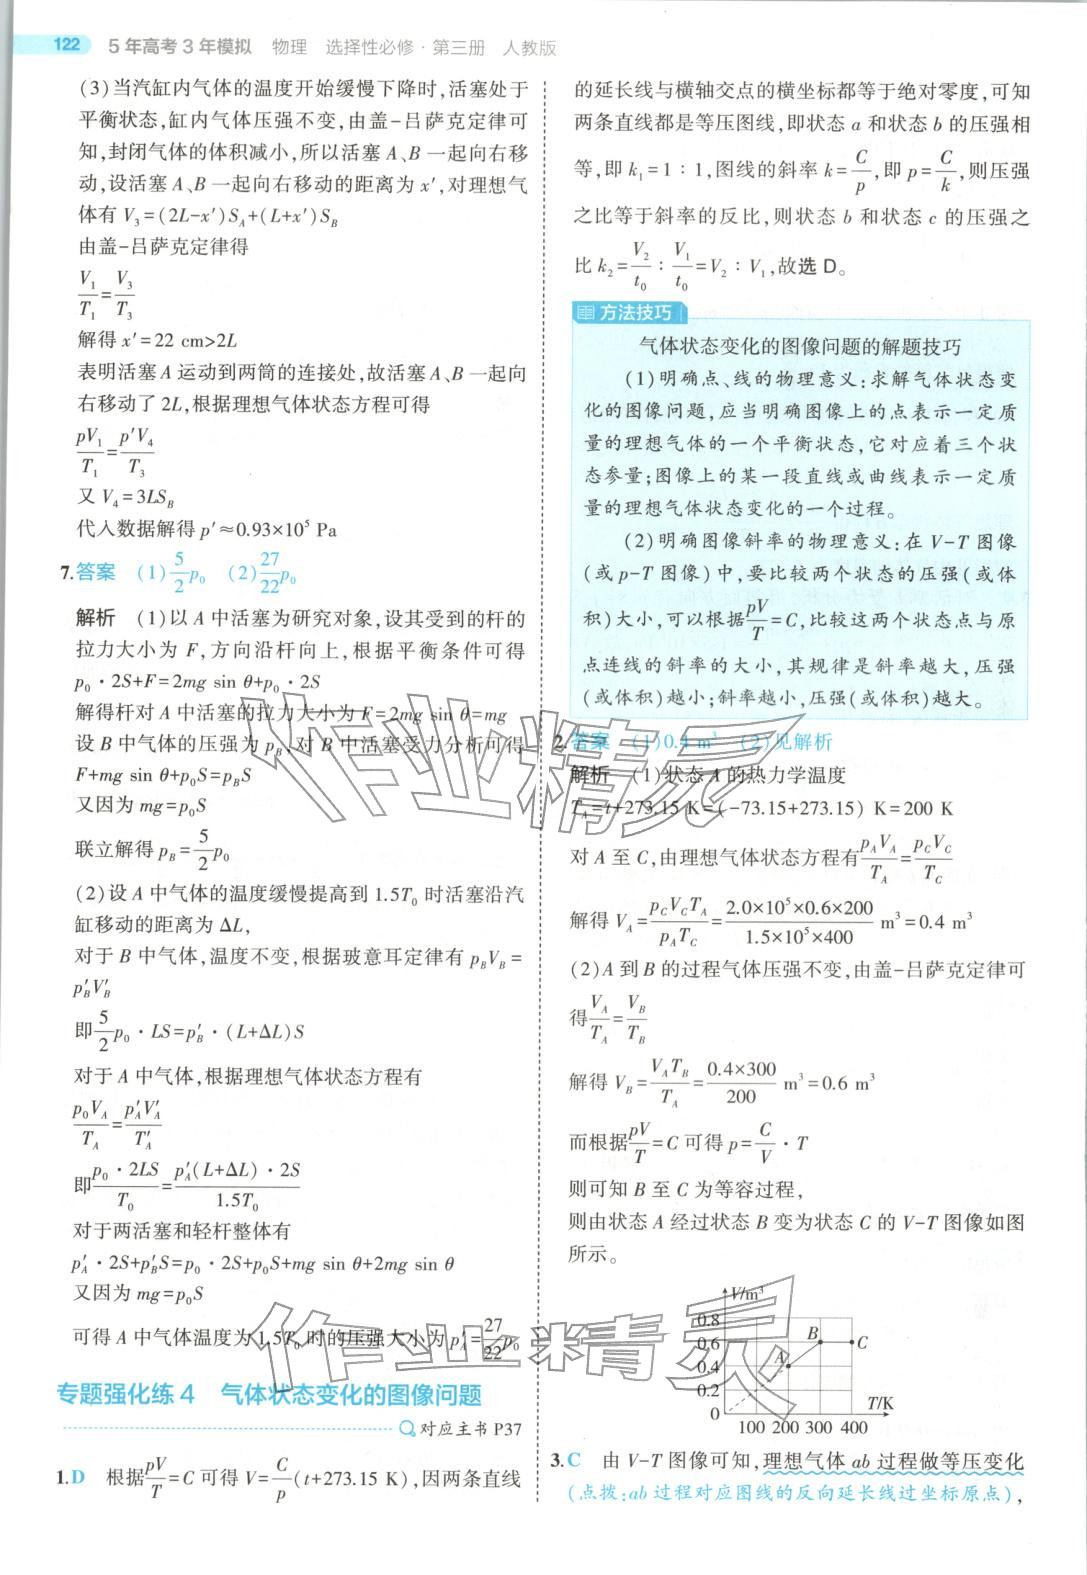 122 5年高考3年模拟 物理 选择性必修·第三册 人教版
(3)当汽缸内气体的温度开始缓慢下降时,活塞处于
平衡状态,缸内气体压强不变,由盖-吕萨克定律可
知,封闭气体的体积减小,所以活塞A、B一起向右移
动,设活塞A、B一起向右移动的距离为x′,对理想气
体有V₃=(2L-x′)S_A+(L+x′)S_B
由盖-吕萨克定律得
V₁/T₁=V₃/T₃
解得x′=22 cm>2L
表明活塞A运动到两筒的连接处,故活塞A、B一起向
右移动了2L,根据理想气体状态方程可得
pV₁/T₁=p′V₄/T₃
又V₄=3LS_B
代入数据解得p′≈0.93×10⁵ Pa
7.答案 (1)5/2 p₀ (2)27/22 p₀
解析 (1)以A中活塞为研究对象,设其受到的杆的
拉力大小为F,方向沿杆向上,根据平衡条件可得
p₀·2S+F=2mg sin θ+p₀·2S
解得杆对A中活塞的拉力大小为F=2mg sin θ=mg
设B中气体的压强为p_B,对B中活塞受力分析可得
F+mg sin θ+p₀S=p_BS
又因为mg=p₀S
联立解得p_B=5/2 p₀
(2)设A中气体的温度缓慢提高到1.5T₀时活塞沿汽
缸移动的距离为ΔL,
对于B中气体,温度不变,根据玻意耳定律有p_BV_B=
p′_BV′_B
即5/2 p₀·LS=p′_B·(L+ΔL)S
对于A中气体,根据理想气体状态方程有
p₀V_A/T_A=p′_AV′_A/T′_A
即p₀·2LS/T₀=p′_A(L+ΔL)·2S/1.5T₀
对于两活塞和轻杆整体有
p′_A·2S+p′_BS=p₀·2S+p₀S+mg sin θ+2mg sin θ
又因为mg=p₀S
可得A中气体温度为1.5T₀时的压强大小为p′_A=27/22 p₀
专题强化练4 气体状态变化的图像问题
对应主书P37
1.D 根据pV/T=C可得V=C/p(t+273.15 K),因两条直线
的延长线与横轴交点的横坐标都等于绝对零度,可知
两条直线都是等压图线,即状态a和状态b的压强相
等,即k₁=1∶1,图线的斜率k=C/p,即p=C/k,则压强
之比等于斜率的反比,则状态b和状态c的压强之
比k₂=V₂/t₀∶V₁/t₀=V₂∶V₁,故选D。
方法技巧
气体状态变化的图像问题的解题技巧
(1)明确点、线的物理意义:求解气体状态变
化的图像问题,应当明确图像上的点表示一定质
量的理想气体的一个平衡状态,它对应着三个状
态参量;图像上的某一段直线或曲线表示一定质
量的理想气体状态变化的一个过程。
(2)明确图像斜率的物理意义:在V-T图像
(或p-T图像)中,要比较两个状态的压强(或体
积)大小,可以根据pV/T=C,比较这两个状态点与原
点连线的斜率的大小,其规律是斜率越大,压强
(或体积)越小;斜率越小,压强(或体积)越大。
2.答案 (1)0.4 m³ (2)见解析
解析 (1)状态A的热力学温度
T_A=t+273.15 K=(-73.15+273.15) K=200 K
对A至C,由理想气体状态方程有p_AV_A/T_A=p_CV_C/T_C
解得V_A=p_CV_CT_A/p_AT_C=2.0×10⁵×0.6×200/1.5×10⁵×400 m³=0.4 m³
(2)A到B的过程气体压强不变,由盖-吕萨克定律可
得V_A/T_A=V_B/T_B
解得V_B=V_AT_B/T_A=0.4×300/200 m³=0.6 m³
而根据pV/T=C可得p=C/V·T
则可知B至C为等容过程,
则由状态A经过状态B变为状态C的V-T图像如图
所示。
V/m³
0.8
0.6 B C
0.4 A
0.2
0 T/K
100 200 300 400
3.C 由V-T图像可知,理想气体ab过程做等压变化
(点拨:ab过程对应图线的反向延长线过坐标原点),
作业精灵
作业精灵